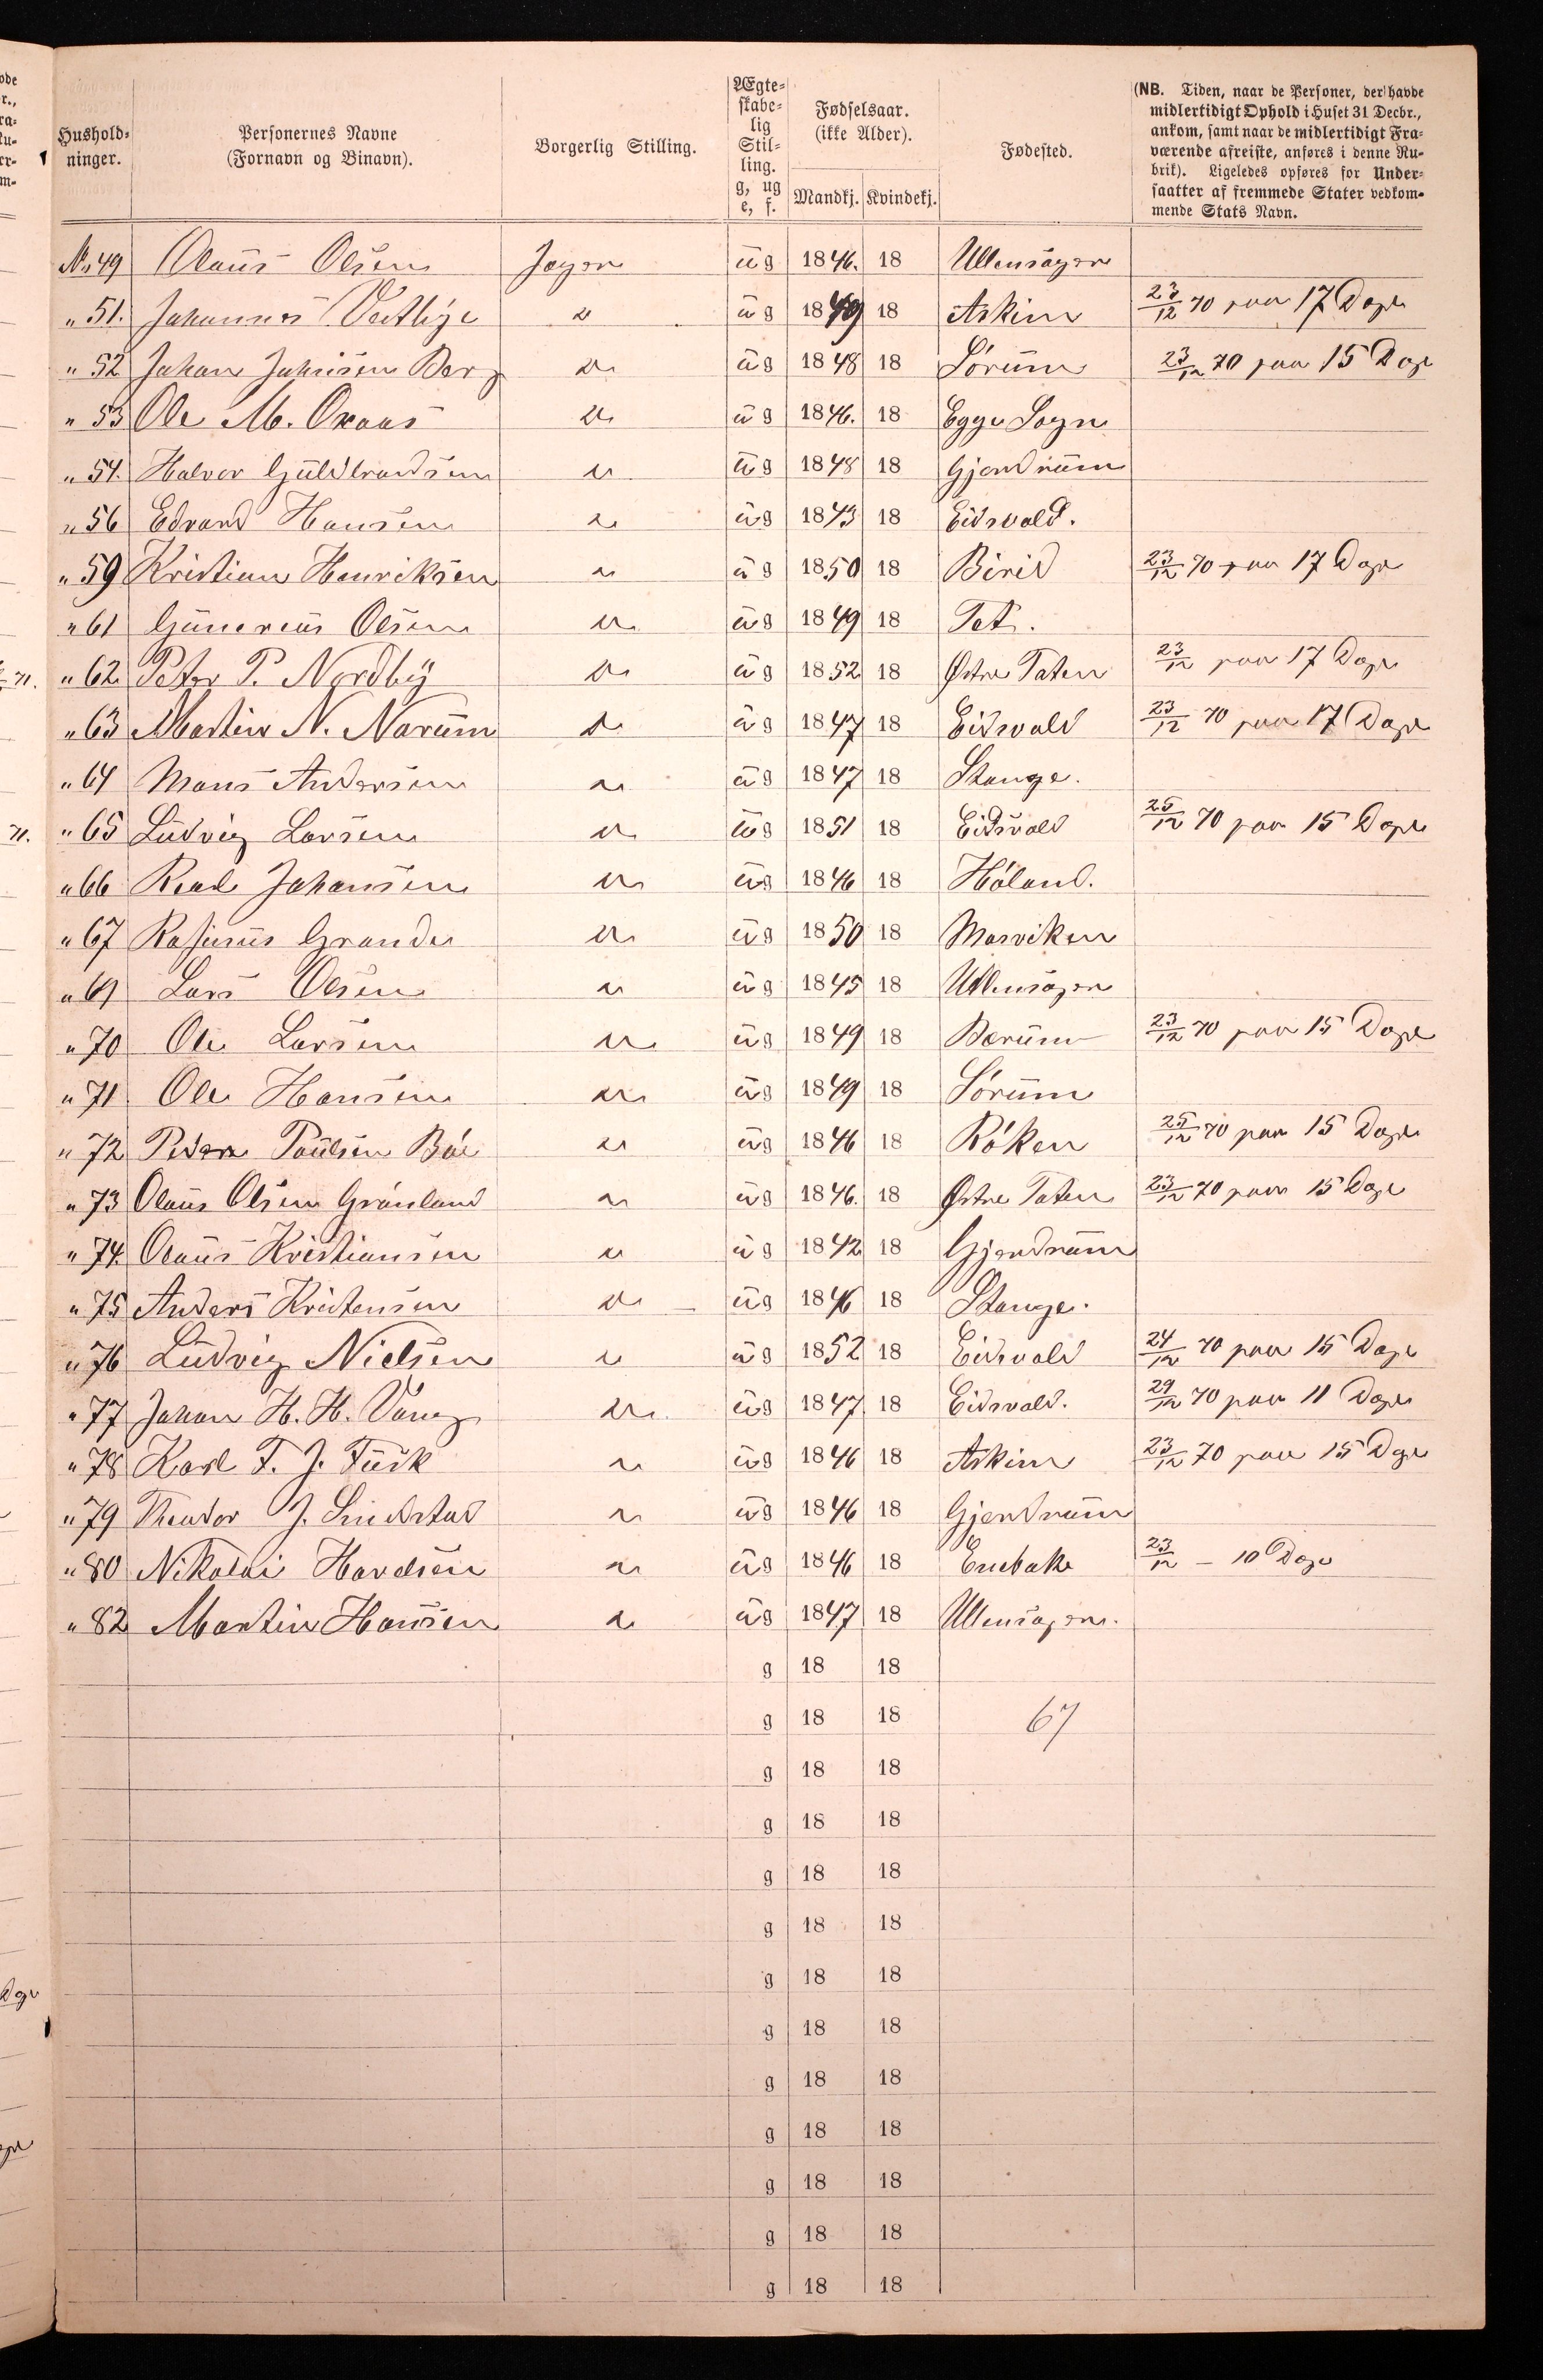 Hushold-
ninger.
Personernes Navne
(Fornavn og Binavn).
Borgerlig Stilling.
Ægte-
skabe-
lig
Stil-
ling.
g, ug
e, f.
Fødselsaar.
(ikke Alder).
Mandkj. Kvindekj.
Fødested.
(NB. Tiden, naar de Personer, der havde
midlertidigt Ophold i Huset 31 Decbr.,
ankom, samt naar de midlertidigt Fra-
værende afreiste, anføres i denne Ru-
brik). Ligeledes opføres for Under-
saatter af fremmede Stater vedkom-
mende Stats Navn.
No 49 Olaus Olsen Jæger ug 1846. 18 Ullensager
" 51. Johannes ug 1849 18 Askim 23/12 70 paa 17 Dage
" 52 Johan Johnsen Berg ug 1848 18 Sórum 23/12 70 paa 15 Dage
" 53 Ole M. ug 1846. 18 Egge Sogn
" 54. Halvor Guldbrandsen ug 1848 18 Gjerdrum
" 56 Edvard Hansen ug 1843 18 Eidsvold.
" 59 Kristian Henriksen ug 1850 18 Birid 23/12 70 paa 17 Dage
" 61 Gunerius Olsen ug 1849 18
" 62 Peter P. Nordby ug 1852 18 Østre Toten 23/12 paa 17 Dage
" 63 Martin N. Narum ug 1847 18 Eidsvold 23/12 70 paa 17 Dage
" 64 Mons Andersen ug 1847 18 Stange.
" 65 Ludvig Larsen ug 1851 18 Eidsvold 25/12 70 paa 15 Dage
" 66 Johansen ug 1846 18 Hóland.
" 67 Rasmus Grande ug 1850 18 Mosviken
" 69 Lars Olsen ug 1845 18 Ullensager
" 70 Ole Larsen ug 1849 18 Bærum 23/12 70 paa 15 Dage
" 71 Ole Hansen ug 1849 18 Sórum
" 72 Peder Paulsen Bóe ug 1846 18 Róken 25/12 70 paa 15 Dage
" 73 Olaus Olsen Grónland ug 1846. 18 Østre Toten 23/12 70 paa 15 Dage
" 74. Olaus Kristiansen ug 1842 18 Gjerdrum
" 75 Anders Kristensen ug 1846 18 Stange.
" 76 Ludvig Nielsen ug 1852 18 Eidsvold 24/12 70 paa 15 Dage
" 77 Johan H. H. Vang ug 1847 18 Eidsvold. 29/12 70 paa 11 Dage
" 78 Karl T. J. Tusk ug 1846 18 Askim 23/12 70 paa 15 Dage
" 79 Theodor J. Lindstad ug 1846 18 Gjerdrum
" 80 Nikolai Havelsen ug 1846 18 Enebak 23/12 – 10 Dage
" 82 Martin Hansen ug 1847 18 Ullensager.
g 18 18
g 18 18 67
g 18 18
g 18 18
g 18 18
g 18 18
g 18 18
g 18 18
g 18 18
g 18 18
g 18 18
g 18 18
g 18 18